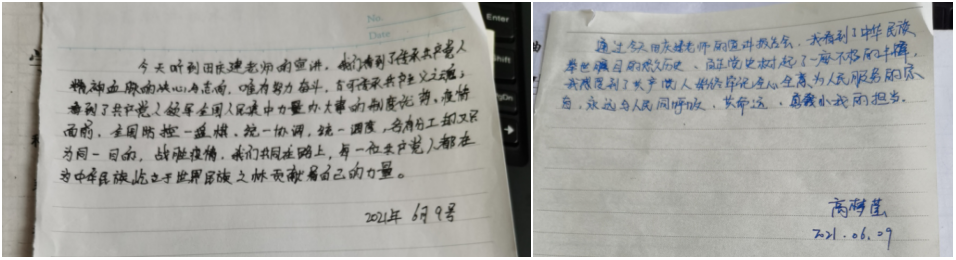 No.
Date
Enter
Shift
PgDn
今天听到田庆建老师的宣讲,我们看到了传承共产党人
精神血脉的决心与志向,唯有努力奋斗,方可传承共产主义之魂;
看到了共产党人领导全国人民集中力量办大事的制度优势,疫情
面前,全国防控一盘棋,统一协调,统一调度,各有分工却又只
为同一目的,战胜疫情,我们共同在路上,每一位共产党人都在
为中华民族屹立于世界民族之林贡献着自己的力量。
2021年 6月9号
通过今天田庆建老师的宣讲报告会,我看到了中华民族
举世瞩目的悠久历史,百年党史树起了一座不朽的丰碑,
我感受到了共产党人始终牢记全心全意为人民服务的宗
旨,永远与人民同呼吸、共命运,勇敢小我的担当。
高梦莹
2021.06.09